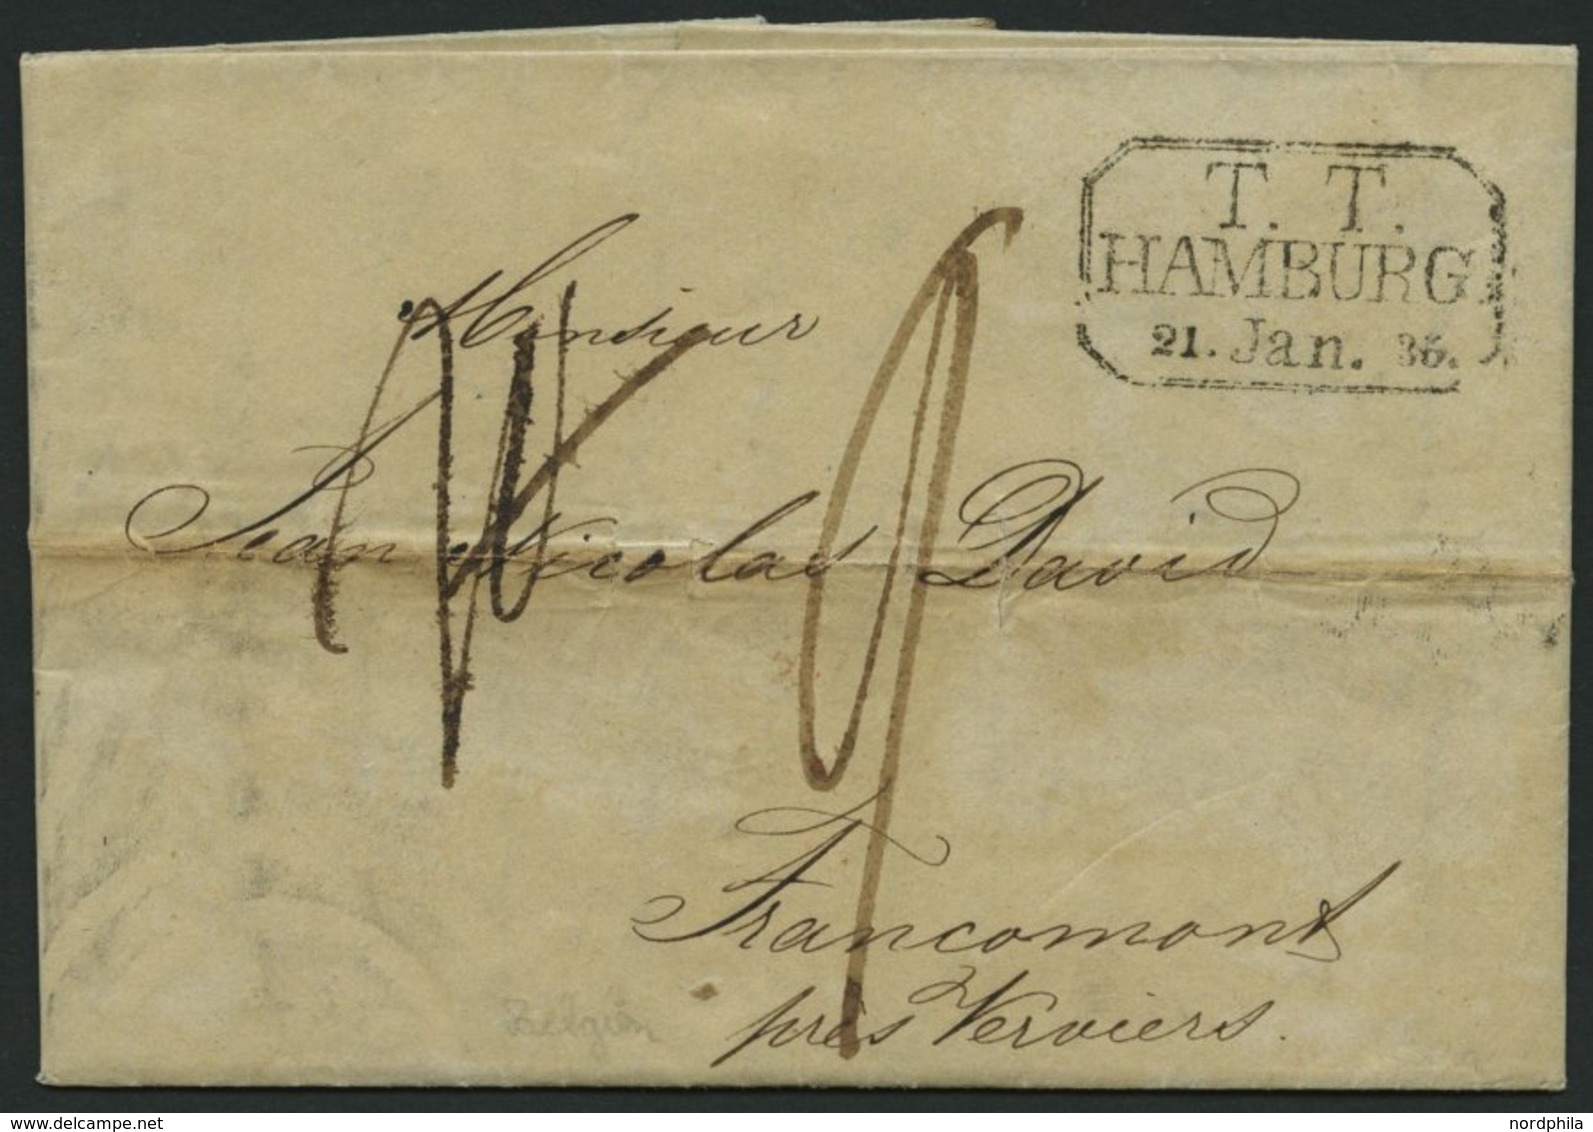 T. T.
HAMBURG
21. Jan. 36.
Monsieur
Jean Nicolas David
Francomont
près Verviers.
Belgien
www.delcampe.net
nordphila